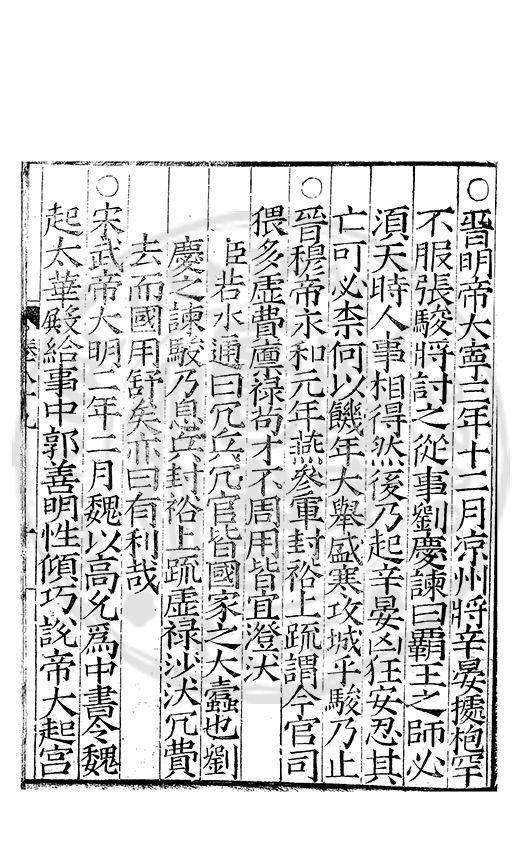 ○晉明帝大寧三年十二月凉州將辛晏據枹罕
不服張駿將討之從事劉慶諫曰覇王之師必
湏天時人事相得然後乃起辛晏凶狂安忍其
亡可必柰何以饑年大舉盛寒攻城乎駿乃止
○晉穆帝永和元年燕叅軍封裕上疏謂今官司
猥多虛費廩禄茍才不周用皆宜澄汰
臣若水通曰冗兵冗官皆國家之大蠹也劉
慶之諫駿乃息兵封裕上疏虛禄沙汰冗費
去而國用舒矣亦曰有利哉
○宋武帝大明二年二月魏以高允爲中書令魏
起太華殿給事中郭善明性傾巧說帝大起宫